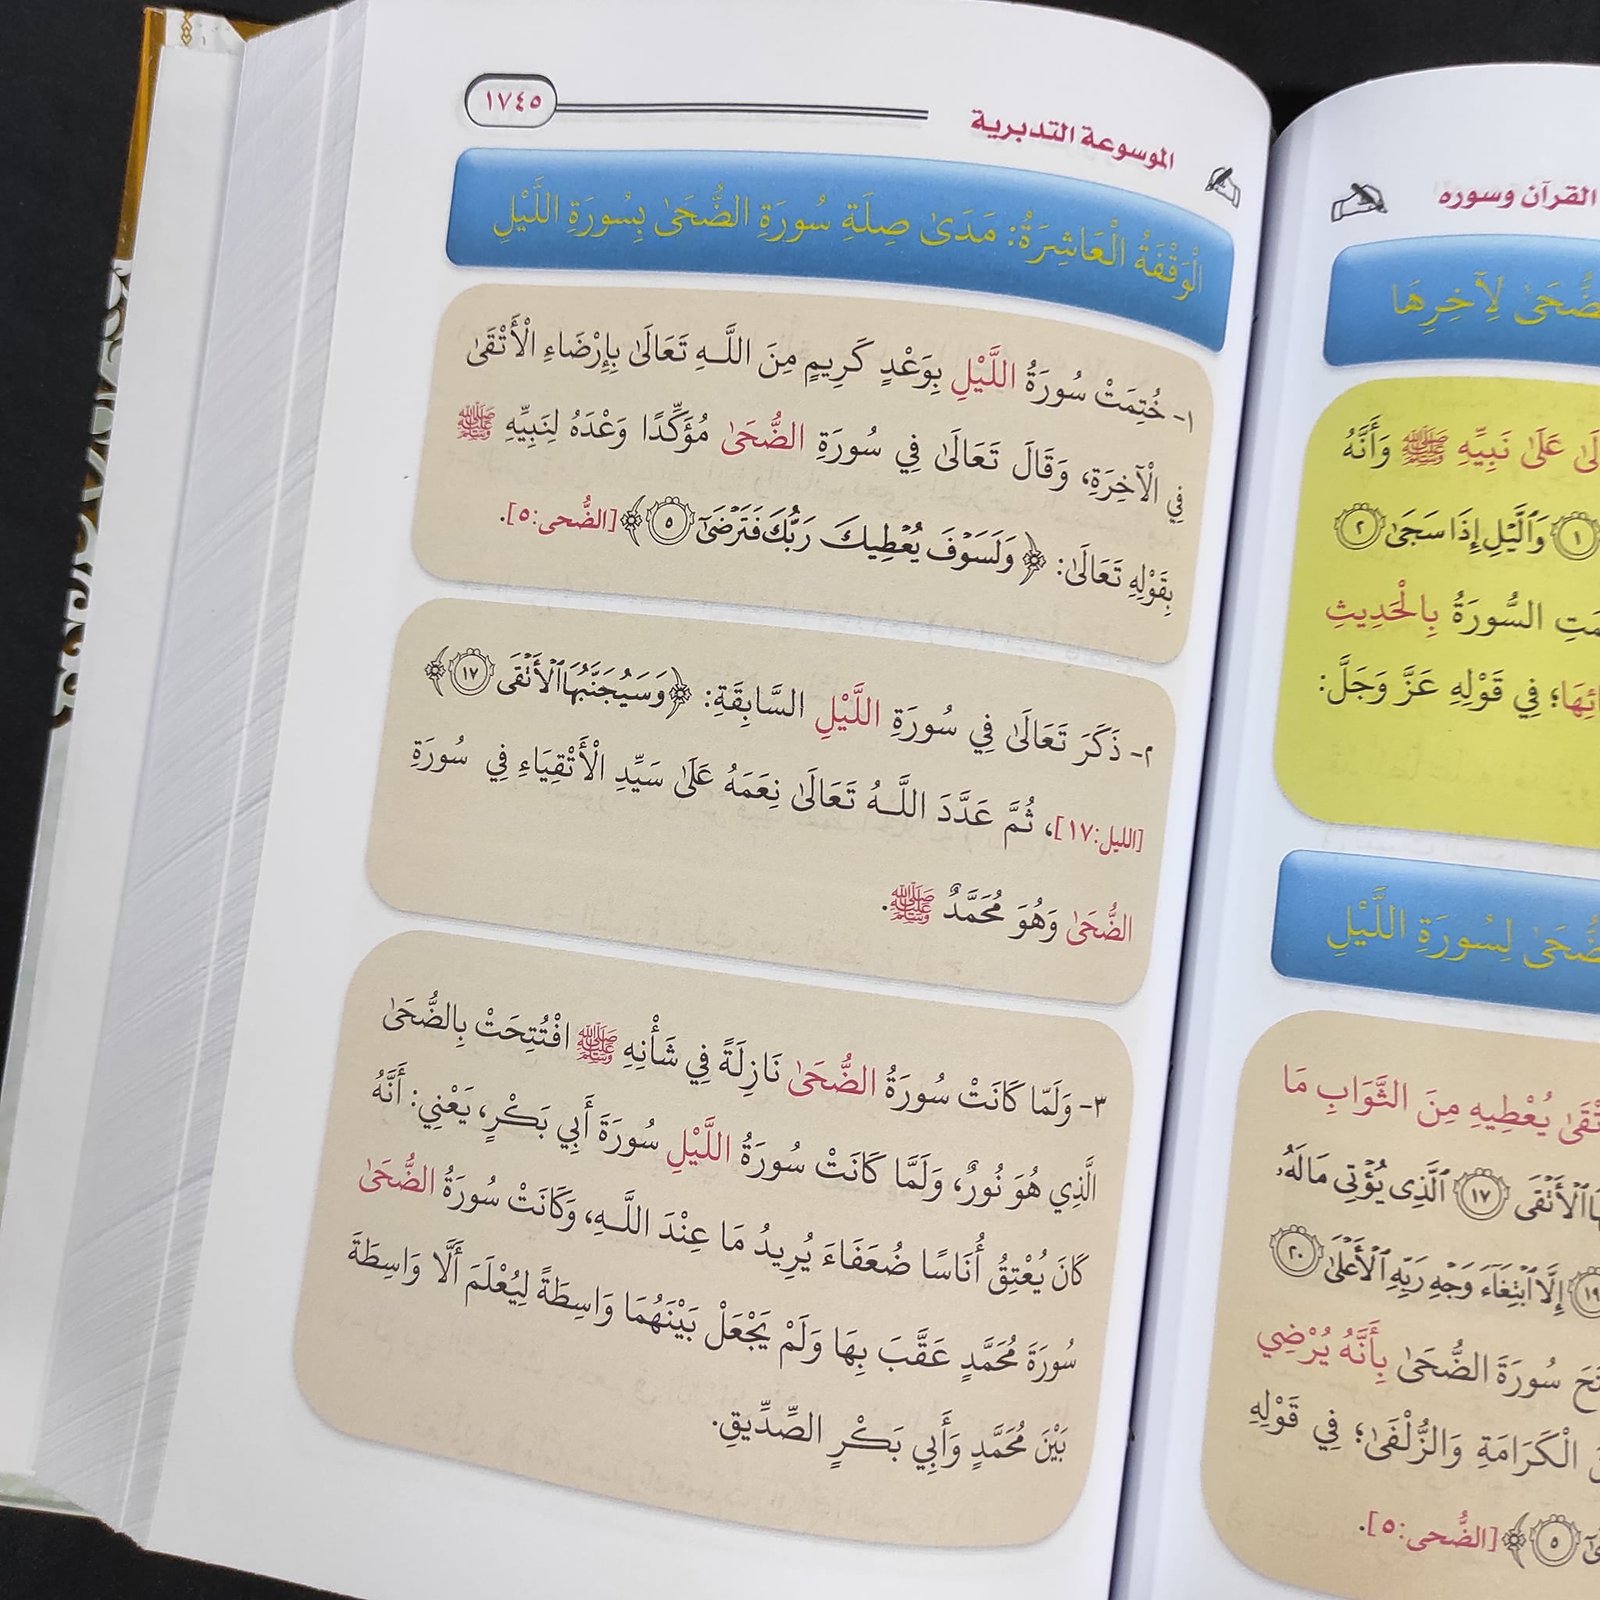 القرآن وسوره
لِآخِرِهَا
عَلَىٰ نَبِيِّهِ ﷺ وَأَنَّهُ
۝١ وَٱلَّيۡلِ إِذَا سَجَىٰ ۝٢
السُّورَةُ بِالْحَدِيثِ
فِي قَوْلِهِ عَزَّ وَجَلَّ:
لِسُورَةِ اللَّيْلِ
يُعْطِيهِ مِنَ الثَّوَابِ مَا
ٱلۡأَتۡقَى ۝١٧ ٱلَّذِي يُؤۡتِي مَالَهُۥ
۝١٩ إِلَّا ٱبۡتِغَآءَ وَجۡهِ رَبِّهِ ٱلۡأَعۡلَىٰ ۝٢٠
سُورَةَ الضُّحَىٰ بِأَنَّهُ يُرْضِي
الْكَرَامَةِ وَالزُّلْفَىٰ؛ فِي قَوْلِهِ
۝٥﴾ [الضُّحى:٥].
الموسوعة التدبرية
١٧٤٥
الْوَقْفَةُ الْعَاشِرَةُ: مَدَىٰ صِلَةِ سُورَةِ الضُّحَىٰ بِسُورَةِ اللَّيْلِ
١- خُتِمَتْ سُورَةُ اللَّيْلِ بِوَعْدٍ كَرِيمٍ مِنَ اللَّـهِ تَعَالَىٰ بِإِرْضَاءِ الْأَتْقَىٰ
فِي الْآخِرَةِ، وَقَالَ تَعَالَىٰ فِي سُورَةِ الضُّحَىٰ مُؤَكِّدًا وَعْدَهُ لِنَبِيِّهِ ﷺ
بِقَوْلِهِ تَعَالَىٰ: ﴿وَلَسَوۡفَ يُعۡطِيكَ رَبُّكَ فَتَرۡضَىٰٓ ۝٥﴾ [الضُّحى:٥].
٢- ذَكَرَ تَعَالَىٰ فِي سُورَةِ اللَّيْلِ السَّابِقَةِ: ﴿وَسَيُجَنَّبُهَا ٱلۡأَتۡقَى ۝١٧﴾
[الليل:١٧]، ثُمَّ عَدَّدَ اللَّـهُ تَعَالَىٰ نِعَمَهُ عَلَىٰ سَيِّدِ الْأَتْقِيَاءِ فِي سُورَةِ
الضُّحَىٰ وَهُوَ مُحَمَّدٌ ﷺ.
٣- وَلَمّا كَانَتْ سُورَةُ الضُّحَىٰ نَازِلَةً فِي شَأْنِهِ ﷺ افْتُتِحَتْ بِالضُّحَىٰ
الَّذِي هُوَ نُورٌ، وَلَمَّا كَانَتْ سُورَةُ اللَّيْلِ سُورَةَ أَبِي بَكْرٍ، يَعْنِي: أَنَّهُ
كَانَ يُعْتِقُ أُنَاسًا ضُعَفَاءَ يُرِيدُ مَا عِنْدَ اللَّـهِ، وَكَانَتْ سُورَةُ الضُّحَىٰ
سُورَةَ مُحَمَّدٍ عَقَّبَ بِهَا وَلَمْ يَجْعَلْ بَيْنَهُمَا وَاسِطَةً لِيُعْلَمَ أَلَّا وَاسِطَةَ
بَيْنَ مُحَمَّدٍ وَأَبِي بَكْرٍ الصِّدِّيقِ.